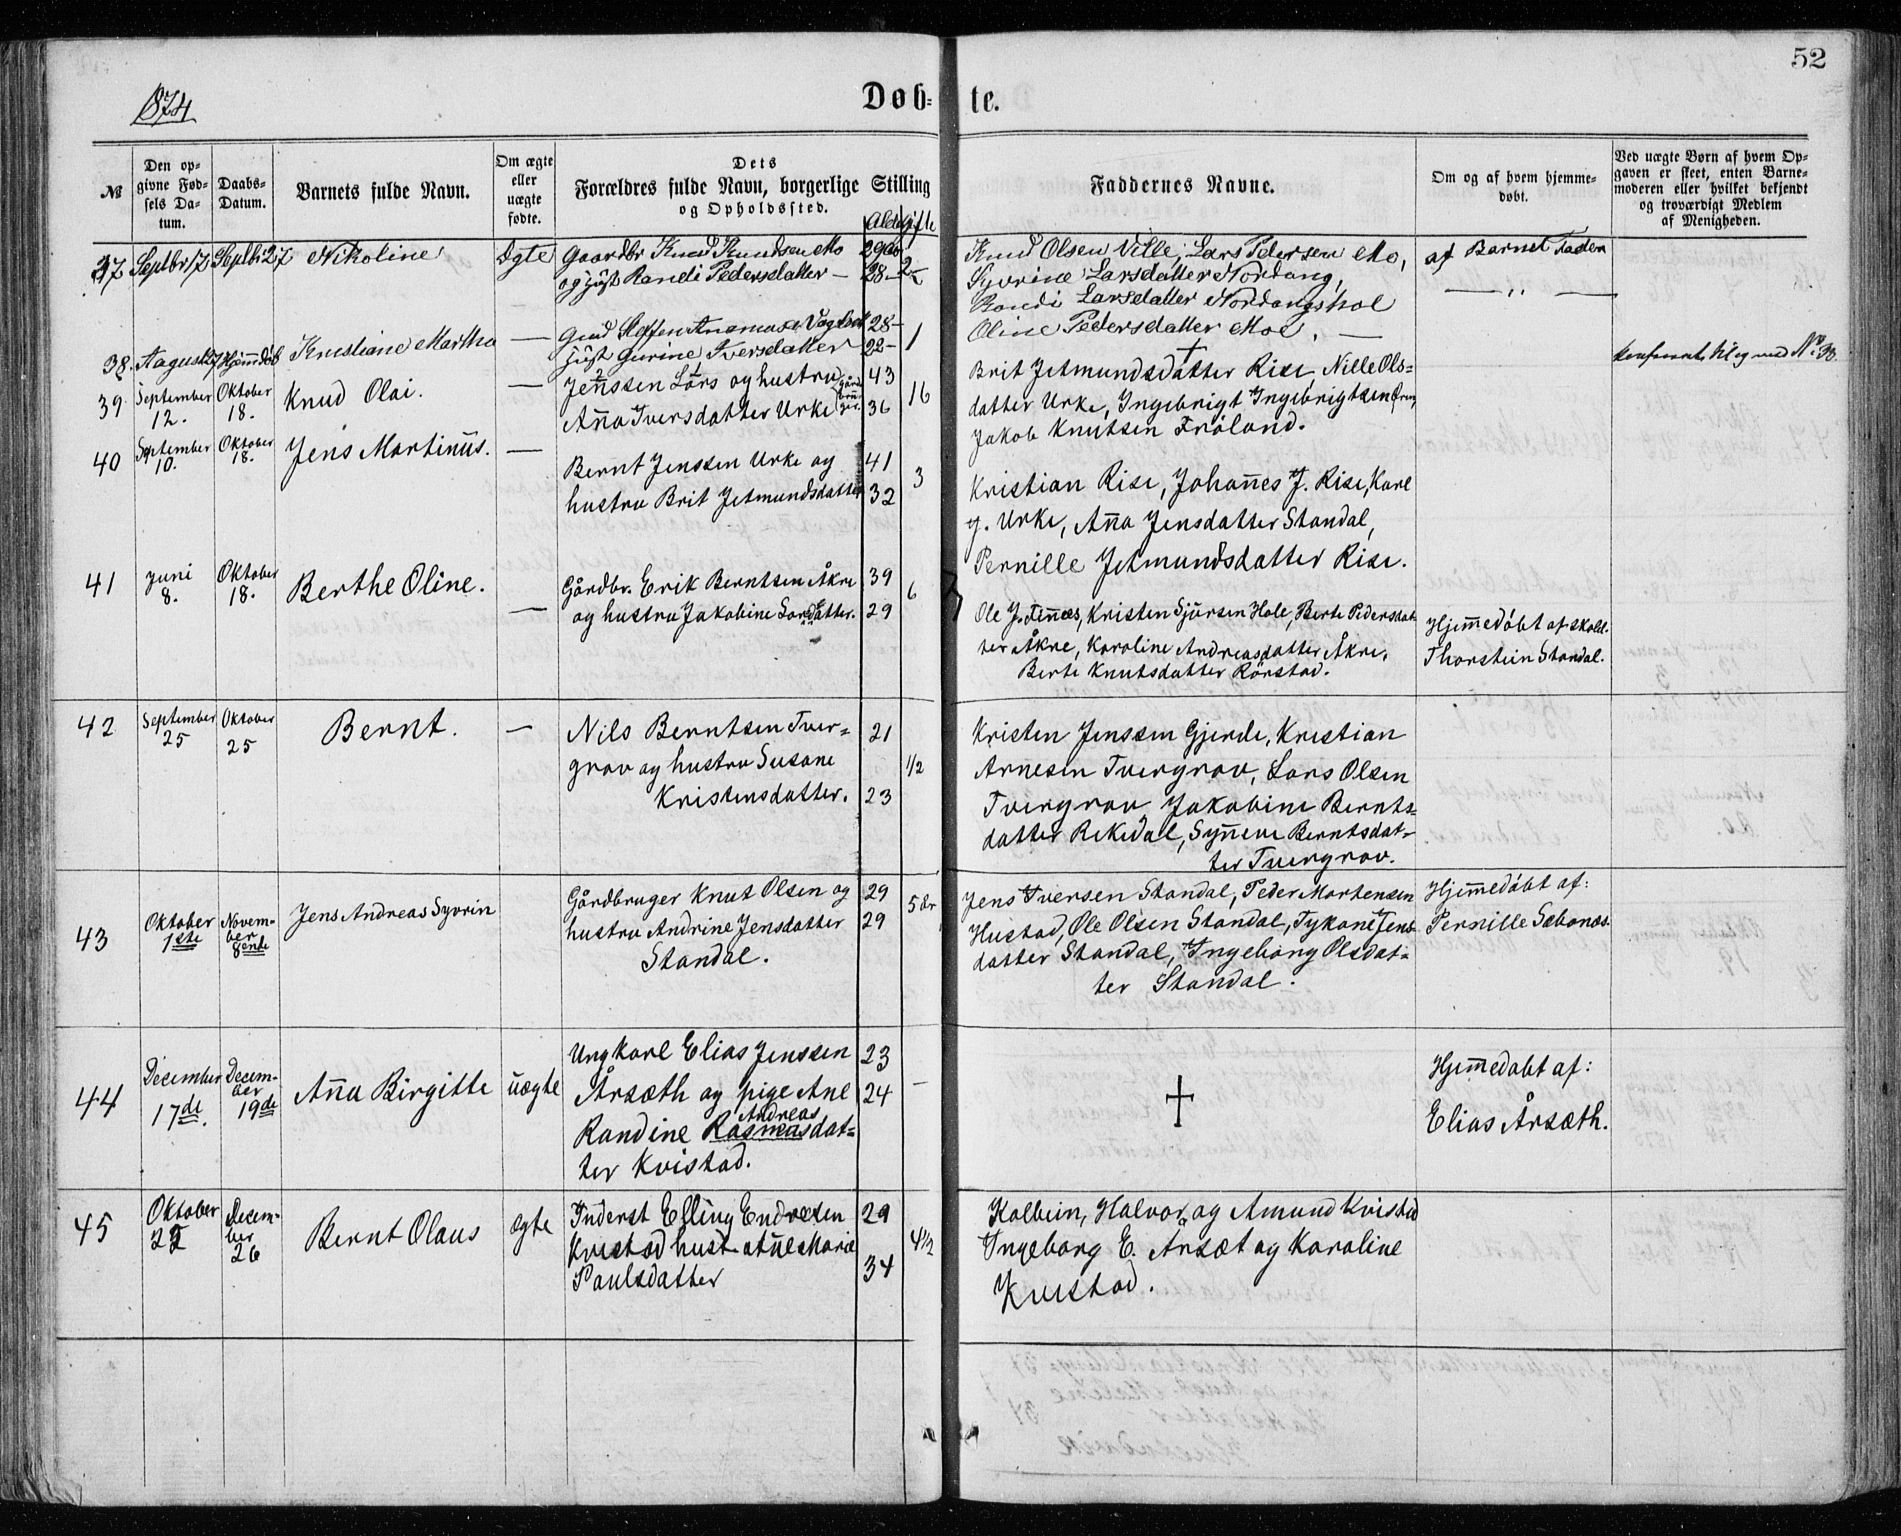 52
1874
Døb- te.
№
Den op-
givne Fød-
sels Da-
tum.
Daabs-
Datum.
Barnets fulde Navn.
Om ægte
eller
uægte
fødte.
Dets
Forældres fulde Navn, borgerlige Stilling
og Opholdssted.
Alder gifte
Faddernes Navne.
Om og af hvem hjemme-
døbt.
Ved uægte Børn af hvem Op-
gaven er skeet, enten Barne-
moderen eller hvilket bekjendt
og troværdigt Medlem
af Menigheden.
37 Septbr 17 Septbr 27 Nikoline Ægte Gaardbr Knud Knudsen Mo 29
og Randi Pedersdatter — 28 — 2
Knud Olsen Ville, Lars Pedersen Mo,
Syvrine Larsdatter Nordang,
Randi Larsdatter Nordangshol
Oline Pedersdatter Moe. —
af Barnet Fader
— „ —
38. August Hjemdøb Kristiane Martha — Steffen 28 —
Gurine Iversdatter 22 — 1
†
No 38.
39. September
12.
Oktober
18.
Knud Olai. —
Jenssen Lars og hustru 43
Anna Iversdatter Urke 36
16
Brit Jetmundsdatter Rise Nille Ols-
datter Urke, Ingebrigt Ingebrigtsen
Jakob Knutsen Frøland.
40 September
10.
Oktober
18.
Jens Martinus. —
Bernt Jenssen Urke og 41
hustru Brit Jetmundsdatter 32
3
Kristian Rise, Johannes J. Rise, Karl
J. Urke, Anna Jensdatter Standal,
Pernille Jetmundsdatter Rise.
41 Juni
8.
Oktober
18.
Berthe Oline. —
Gårdbr. Erik Berntsen Åkre 39
og hustru Jakobine Larsdatter. 29
6
Ole J. Finnes, Kristen Sjursen Hole, Berte Pedersdat-
ter Åkre, Karoline Andreasdatter Åkre,
Berte Knutsdatter Rörstad.
Hjemmedøbt af skoll.
Thorstein Standal.
42 September
25
Oktober
25
Bernt. —
Nils Berntsen Tver- 21
grov og hustru Susane
Kristensdatter. 23
1/2
Kristen Jenssen Gjerde, Kristian
Arnesen Tvergrov, Lars Olsen
Tvergrov Jakobine Bernts-
datter Rekedal, Synneve Berntsdat-
ter Tvergrov.
43 Oktober
1ste
Novem-
ber
8ende
Jens Andreas Syvrin
Gårdbruger Knut Olsen og 29
hustru Andrine Jensdatter 29
Standal.
5 år
Jens Iversen Standal, Peder Mortensen
Hustad, Ole Olsen Standal, Tykane Jens-
datter Standal, Ingeborg Olsdat-
ter Standal.
Hjemmedøbt af:
Pernille Sæbonæs.
44 December
17de.
Decem-
ber
19de
Anna Birgitte uægte
Ungkarl Elias Jenssen 23
Årsæth og pige Ane 24 —
Andreas
Randine Rasmusdat-
ter Kvistad.
†
Hjemmedøbt af:
Elias Årsæth.
45 Oktober
22
Decem-
ber
26
Bernt Olaus ægte
Inderst Elling Endresen 29
Kvistad hust. Ane Marie
Paulsdatter 34
4 1/2
Kolbein, Halvor og Amund Kvistad
Ingeborg E. Årsæt og Karoline
Kvistad.